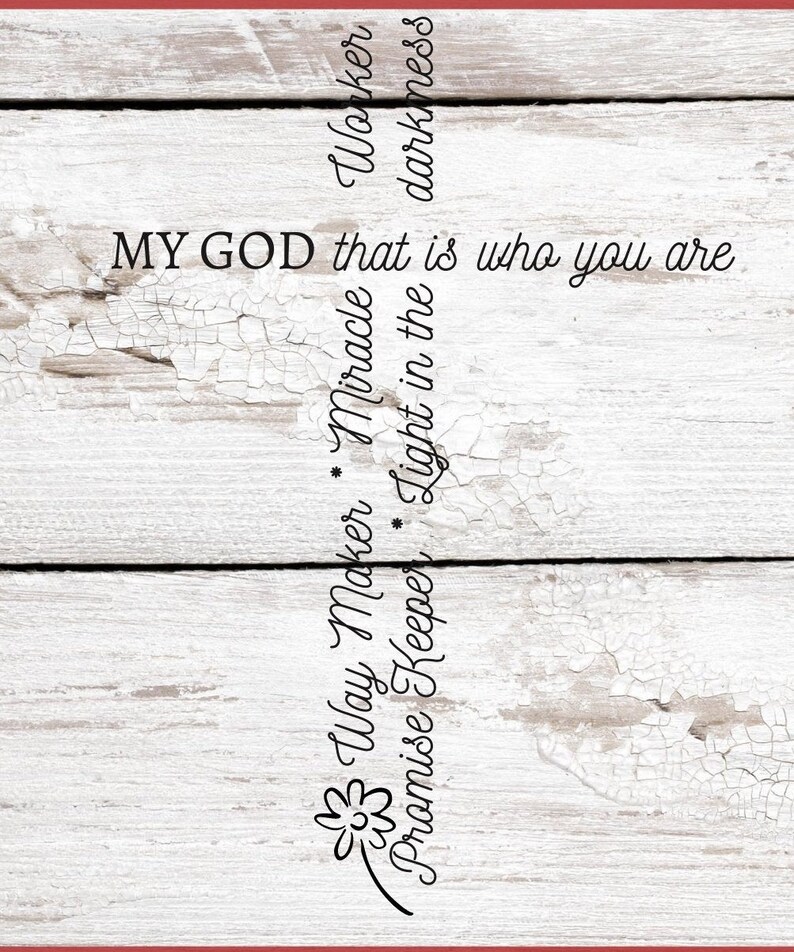 Way Maker * Miracle Worker
Promise Keeper * Light in the darkness
MY GOD that is who you are